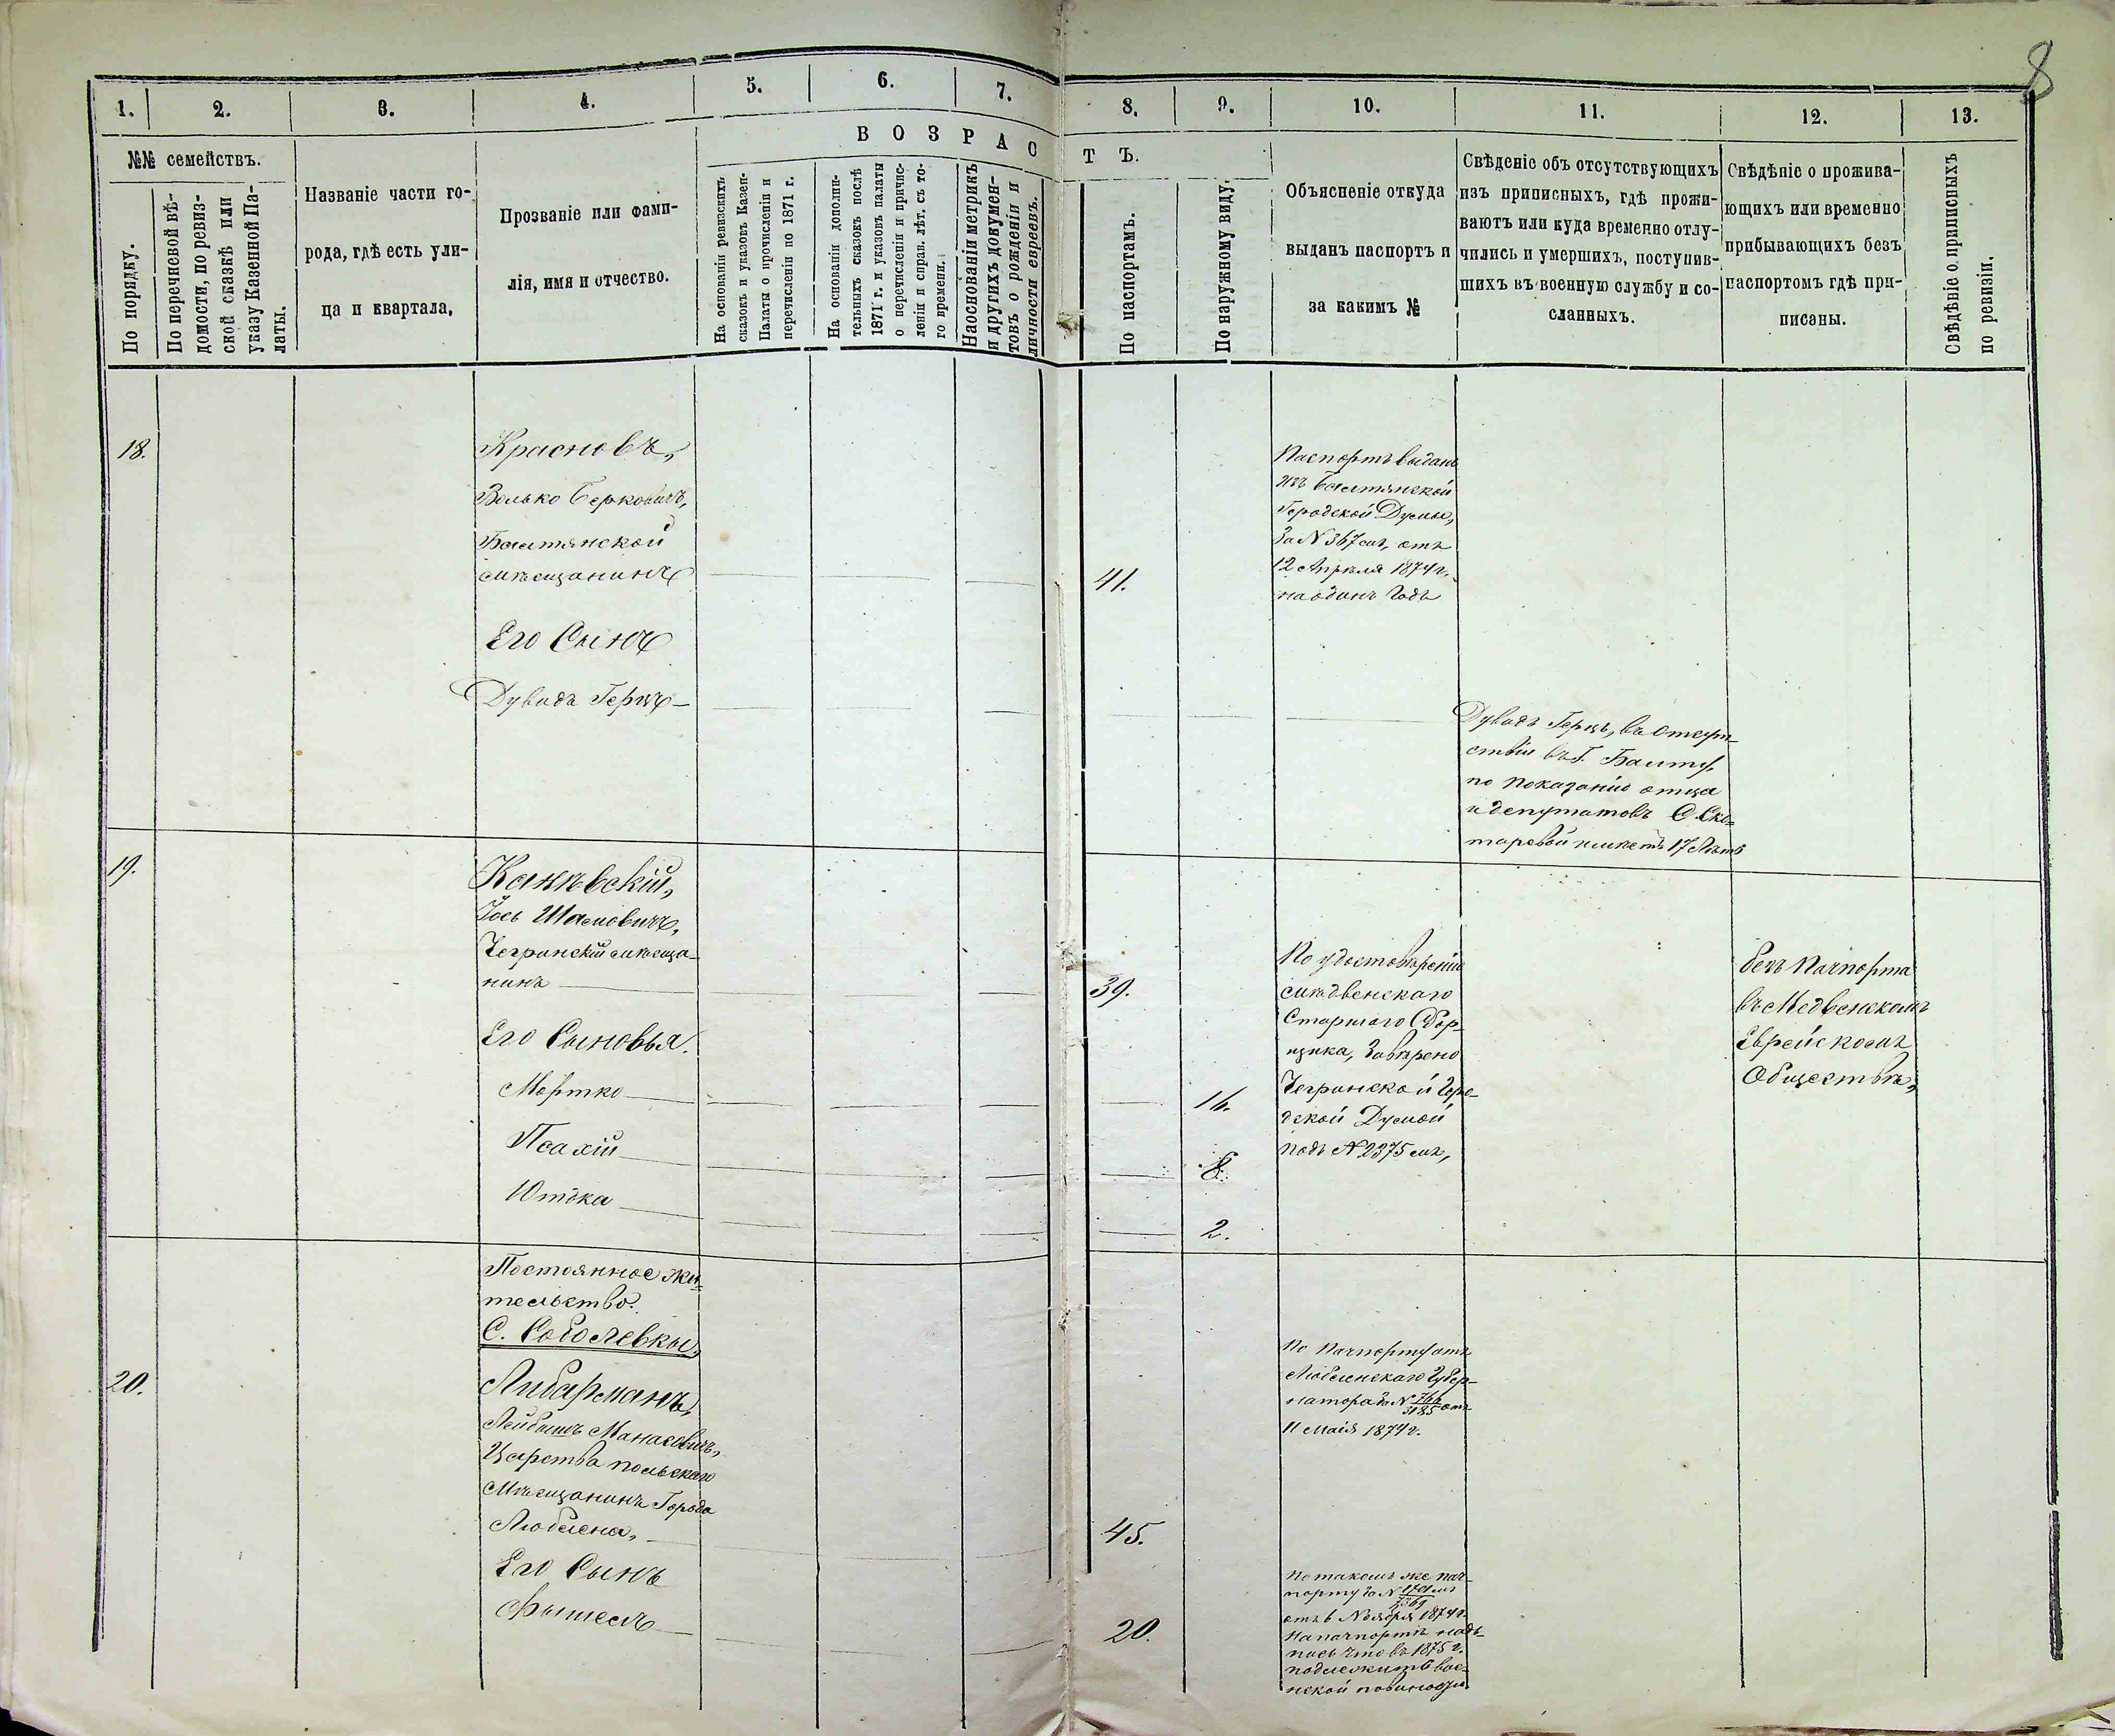 8
1. 2. 3. 4. 5. 6. 7. 8. 9. 10. 11. 12. 13.
ВОЗРАСТЪ.
№№ семействъ.
По порядку.
По перечневой вѣ-
домости, по ревиз-
ской сказкѣ или
указу Казенной Па-
латы.
Названіе части го-
рода, гдѣ есть ули-
ца и квартала,
Прозваніе или фами-
лія, имя и отчество.
На основаніи ревизскихъ
сказокъ и указовъ Казен-
Палаты о причисленіи и
перечисленіи по 1871 г.
На основаніи дополни-
тельныхъ сказокъ послѣ
1871 г. и указовъ палаты
о перечисленіи и причис-
леніи и справ. лѣт. съ то-
го времени.
На основаніи метрикъ
и другихъ докумен-
товъ о рожденіи и
личности евреевъ.
По паспортамъ.
По наружному виду.
Объясненіе откуда
выданъ паспортъ и
за какимъ №
Свѣденіе объ отсутствующихъ
изъ приписныхъ, гдѣ прожи-
ваютъ или куда временно отлу-
чились и умершихъ, поступив-
шихъ въ военную службу и со-
сланныхъ.
Свѣдѣніе о прожива-
ющихъ или временно
прибывающихъ безъ
паспортомъ гдѣ при-
писаны.
Свѣдѣніе о приписныхъ
по ревизіи.
18.
Красновъ,
Велько Берковичъ,
Балтянской
мѣщанинъ
41.
Паспортъ выданъ
изъ Балтянской
Городской Думы,
за N 367мъ, отъ
12 Апрѣля 1874 г.
на одинъ Годъ
Его Сынъ
Дувидъ Герцъ
Дувидъ Герцъ, въ отсут-
ствіи въ Г. Балту,
по показанію отца
и депутатовъ С. Ско-
таревой имѣетъ 17 Лѣтъ
19.
Канѣвскій,
Іось Шамовичъ,
Чегринскій мѣща-
нинъ
39.
По удостовѣренію
мѣдвенскаго
Старшаго Сбор-
щика, завѣрено
Чегринской Горо-
дской Думой
подъ N 2375мъ,
безъ Пачпорта
въ Медвенскомъ
Еврейскомъ
Обществѣ,
Его Сыновья.
Мортко 16.
Псахій 8.
Ютока 2.
Постоянное жи-
тельство.
С. Соболевкы,
20.
Либарманъ,
Лейбишъ Манасовичъ,
Царства польскаго
Мѣщанинъ Города
Люблена,
45.
По Пачпорту отъ
Люблинскаго Губер-
натора за N 766/3185 отъ
11 Маія 1874 г.
Его Сынъ
Фышель
20.
По такомъ же пач-
порту за N
отъ 6 Ноября 1874 г.
На пачпортѣ над-
пись что въ 1875 г.
подлежитъ вое-
нской повиности